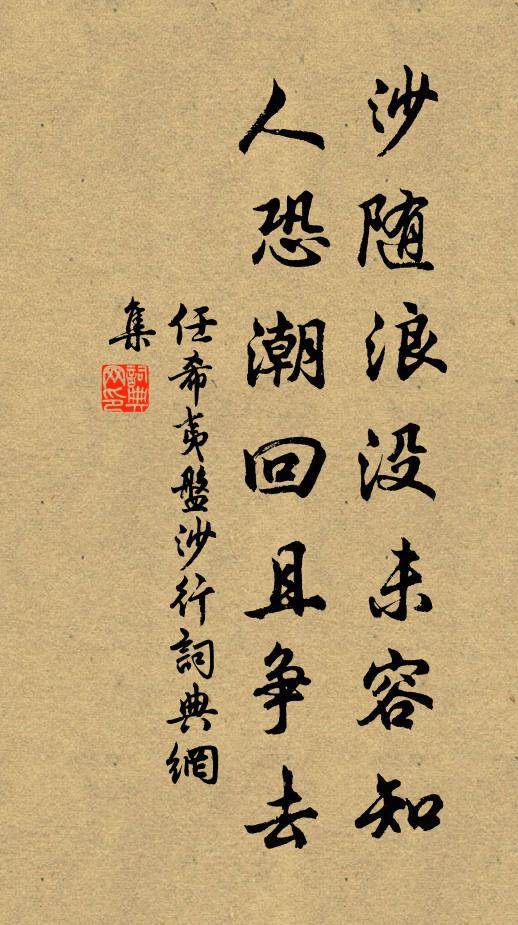 沙随浪没未容知
人恐潮回且争去
任希夷盤沙行詞典網
集
詞典
网印